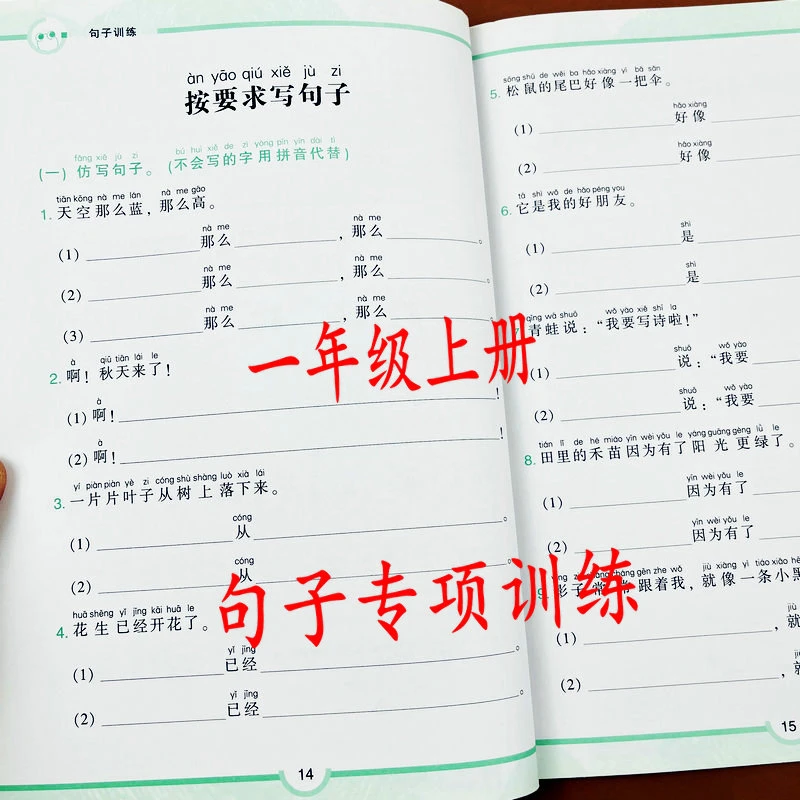 句子训练
àn yāo qiú xiě jù zi
按要求写句子
fǎng xiě jù zi bú huì xiě de zì yòng pīn yīn dài tì
(一) 仿写句子。(不会写的字用拼音代替)
tiān kōng nà me lán nà me gāo
1. 天空那么蓝，那么高。
nà me nà me
(1) 那么 ，那么 。
nà me nà me
(2) 那么 ，那么 。
nà me nà me
(3) 那么 ，那么 。
à qiū tiān lái le
2. 啊！秋天来了！
à
(1) 啊！ ！
à
(2) 啊！ ！
yí piàn piàn yè zi cóng shù shàng luò xià lái
3. 一片片叶子从树上落下来。
cóng
(1) 从 。
cóng
(2) 从
huā shēng yǐ jīng kāi huā le
4. 花生已经开花了。
yǐ jīng
(1) 已经
yǐ jīng
(2) 已经
14
sōng shǔ de wěi ba hǎo xiàng yì bǎ sǎn
5. 松鼠的尾巴好像一把伞。
hǎo xiàng
(1) 好像
hǎo xiàng
(2) 好像
tā shì wǒ de hǎo péng you
6. 它是我的好朋友。
shì
(1) 是
shì
(2) 是
qīng wā shuō wǒ yào xiě shī la
青蛙说：“我要写诗啦！”
shuō wǒ yào
(1) 说：“我要
shuō wǒ yào
(2) 说：“我要
tián lǐ de hé miáo yīn wèi yǒu le yáng guāng gèng lǜ le
8. 田里的禾苗因为有了阳光更绿了。
yīn wèi yǒu le
(1) 因为有了
yīn wèi yǒu le
(2) 因为有了
gēn zhe wǒ jiù xiàng yì tiáo xiǎo
9. 影子常常跟着我，就像一条小黑
jiù
(1) ，就
jiù
(2) ，就
15
一年级上册
句子专项训练